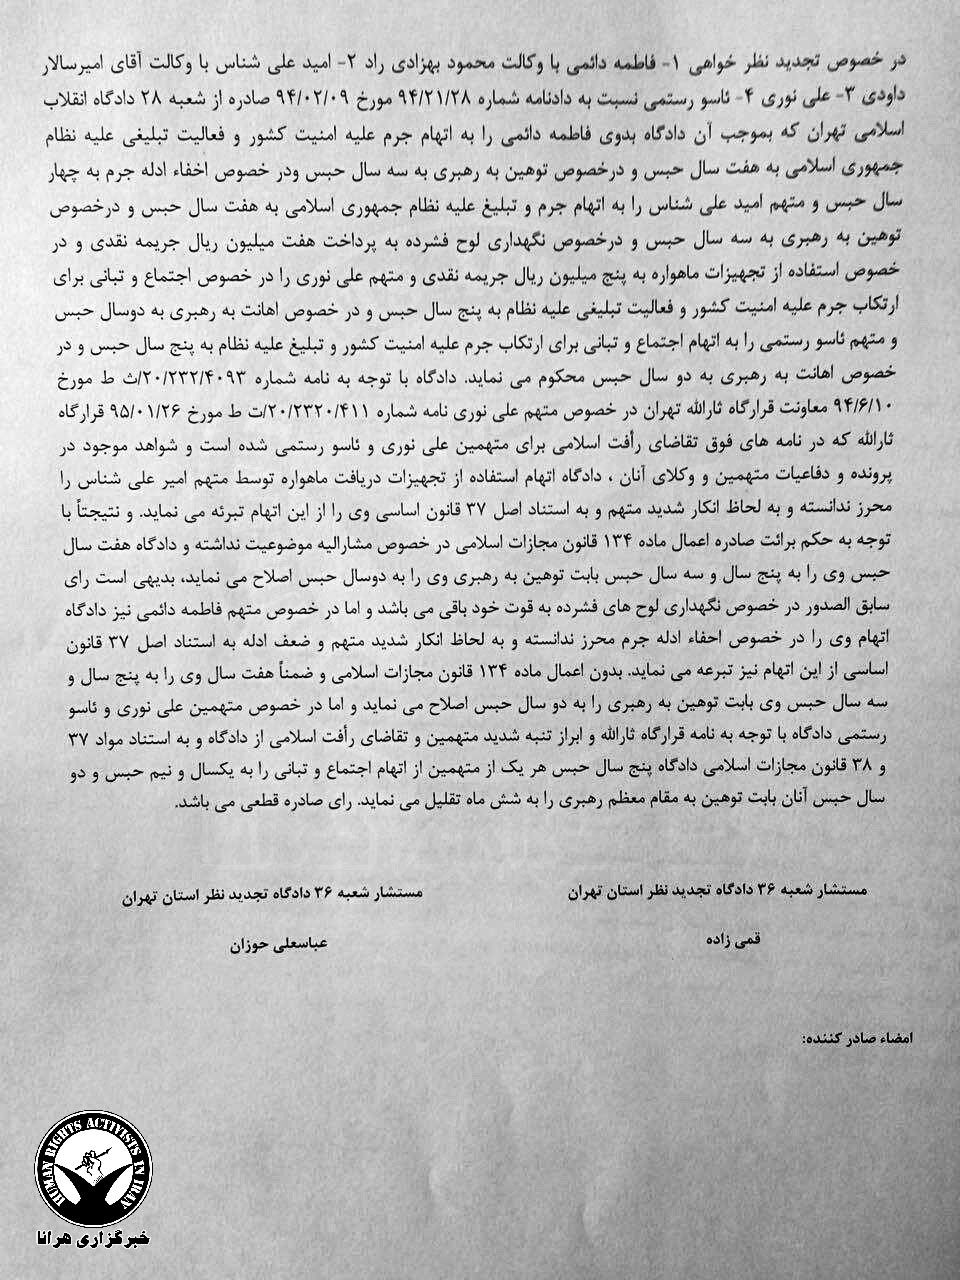 در خصوص تجدید نظر خواهی ۱- فاطمه دائمی با وکالت محمود بهزادی راد ۲- امید علی شناس با وکالت آقای امیرسالار
داودی ۳- علی نوری ۴- ئاسو رستمی نسبت به دادنامه شماره ۹۴/۲۱/۲۸ مورخ ۹۴/۰۲/۰۹ صادره از شعبه ۲۸ دادگاه انقلاب
اسلامی تهران که بموجب آن دادگاه بدوی فاطمه دائمی را به اتهام جرم علیه امنیت کشور و فعالیت تبلیغی علیه نظام
جمهوری اسلامی به هفت سال حبس و درخصوص توهین به رهبری به سه سال حبس ودر خصوص اخفاء ادله جرم به چهار
سال حبس و متهم امید علی شناس را به اتهام جرم و تبلیغ علیه نظام جمهوری اسلامی به هفت سال حبس و درخصوص
توهین به رهبری به سه سال حبس و درخصوص نگهداری لوح فشرده به پرداخت هفت میلیون ریال جریمه نقدی و در
خصوص استفاده از تجهیزات ماهواره به پنج میلیون ریال جریمه نقدی و متهم علی نوری را در خصوص اجتماع و تبانی برای
ارتکاب جرم علیه امنیت کشور و فعالیت تبلیغی علیه نظام به پنج سال حبس و در خصوص اهانت به رهبری به دوسال حبس
و متهم ئاسو رستمی را به اتهام اجتماع و تبانی برای ارتکاب جرم علیه امنیت کشور و تبلیغ علیه نظام به پنج سال حبس و در
خصوص اهانت به رهبری به دو سال حبس محکوم می نماید. دادگاه با توجه به نامه شماره ۲۰/۲۳۲/۴۰۹۳/ث ط مورخ
۹۴/۶/۱۰ معاونت قرارگاه ثارالله تهران در خصوص متهم علی نوری نامه شماره ۲۰/۲۳۲۰/۴۱۱/ت ط مورخ ۹۵/۰۱/۲۶ قرارگاه
ثارالله که در نامه های فوق تقاضای رأفت اسلامی برای متهمین علی نوری و ئاسو رستمی شده است و شواهد موجود در
پرونده و دفاعیات متهمین و وکلای آنان ، دادگاه اتهام استفاده از تجهیزات دریافت ماهواره توسط متهم امیر علی شناس را
محرز ندانسته و به لحاظ انکار شدید متهم و به استناد اصل ۳۷ قانون اساسی وی را از این اتهام تبرئه می نماید. و نتیجتاً با
توجه به حکم برائت صادره اعمال ماده ۱۳۴ قانون مجازات اسلامی در خصوص مشارالیه موضوعیت نداشته و دادگاه هفت سال
حبس وی را به پنج سال و سه سال حبس بابت توهین به رهبری وی را به دوسال حبس اصلاح می نماید، بدیهی است رای
سابق الصدور در خصوص نگهداری لوح های فشرده به قوت خود باقی می باشد و اما در خصوص متهم فاطمه دائمی نیز دادگاه
اتهام وی را در خصوص احفاء ادله جرم محرز ندانسته و به لحاظ انکار شدید متهم و ضعف ادله به استناد اصل ۳۷ قانون
اساسی از این اتهام نیز تبرعه می نماید. بدون اعمال ماده ۱۳۴ قانون مجازات اسلامی و ضمناً هفت سال وی را به پنج سال و
سه سال حبس وی بابت توهین به رهبری را به دو سال حبس اصلاح می نماید و اما در خصوص متهمین علی نوری و ئاسو
رستمی دادگاه با توجه به نامه قرارگاه ثارالله و ابراز تنبه شدید متهمین و تقاضای رأفت اسلامی از دادگاه و به استناد مواد ۳۷
و ۳۸ قانون مجازات اسلامی دادگاه پنج سال حبس هر یک از متهمین از اتهام اجتماع و تبانی را به یکسال و نیم حبس و دو
سال حبس آنان بابت توهین به مقام معظم رهبری را به شش ماه تقلیل می نماید. رای صادره قطعی می باشد.
مستشار شعبه ۳۶ دادگاه تجدید نظر استان تهران
مستشار شعبه ۳۶ دادگاه تجدید نظر استان تهران
قمی زاده
عباسعلی حوزان
امضاء صادر کننده:
HUMAN RIGHTS ACTIVISTS IN IRAN
خبرگزاری هرانا